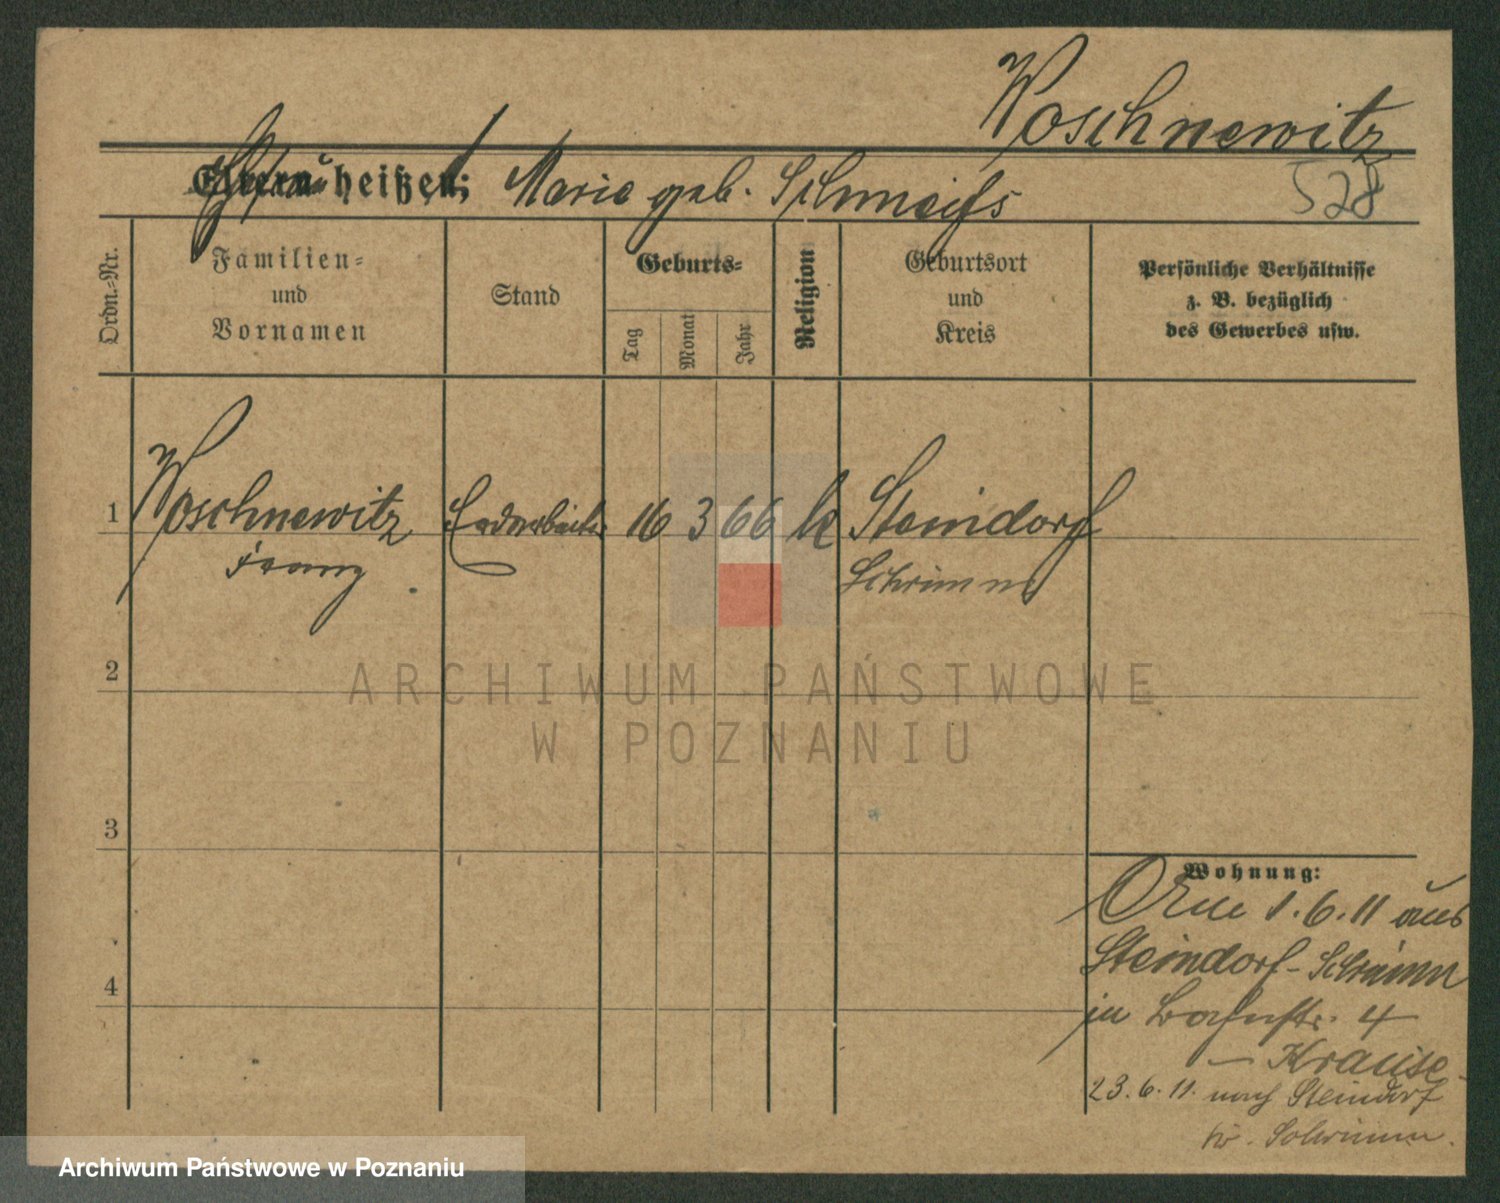 Woschnewitz
528
Eltern heißen: Marie geb.
Ordn.-Nr.
Familien-
und
Vornamen
Stand
Geburts-
Tag
Monat
Jahr
Religion
Geburtsort
und
Kreis
Persönliche Verhältnisse
z. B. bezüglich
des Gewerbes usw.
1 Woschnewitz Erdarbeiter 16 3 66 k Steindorf
Franz Schrimm
2
ARCHIWUM PAŃSTWOWE
W POZNANIU
3
Wohnung:
1.6.11 aus
4 Steindorf - Schrimm
in Bahnstr. 4
- Krause
23.6.11. nach Steindorf
Kr. Schrimm.
Archiwum Państwowe w Poznaniu